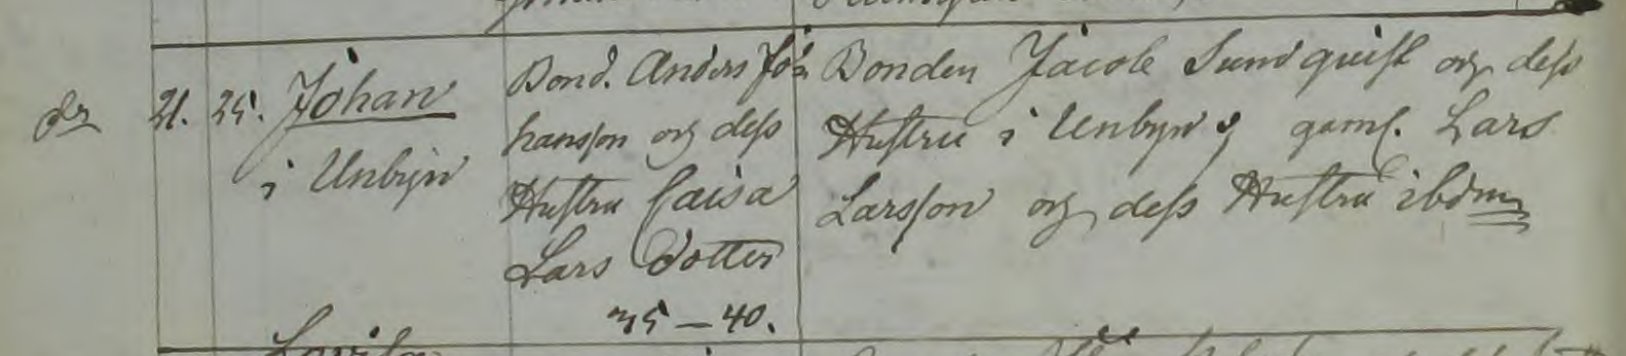 dr 21. 25. Johan
i Unbyn
Bond. Anders Jo-
hansson och dess
Hustru Caisa
Lars dotter
35–40.
Bonden Jacob Sundquist och dess
Hustru i Unbyn, gaml. Lars
Larsson och dess Hustru ibdm